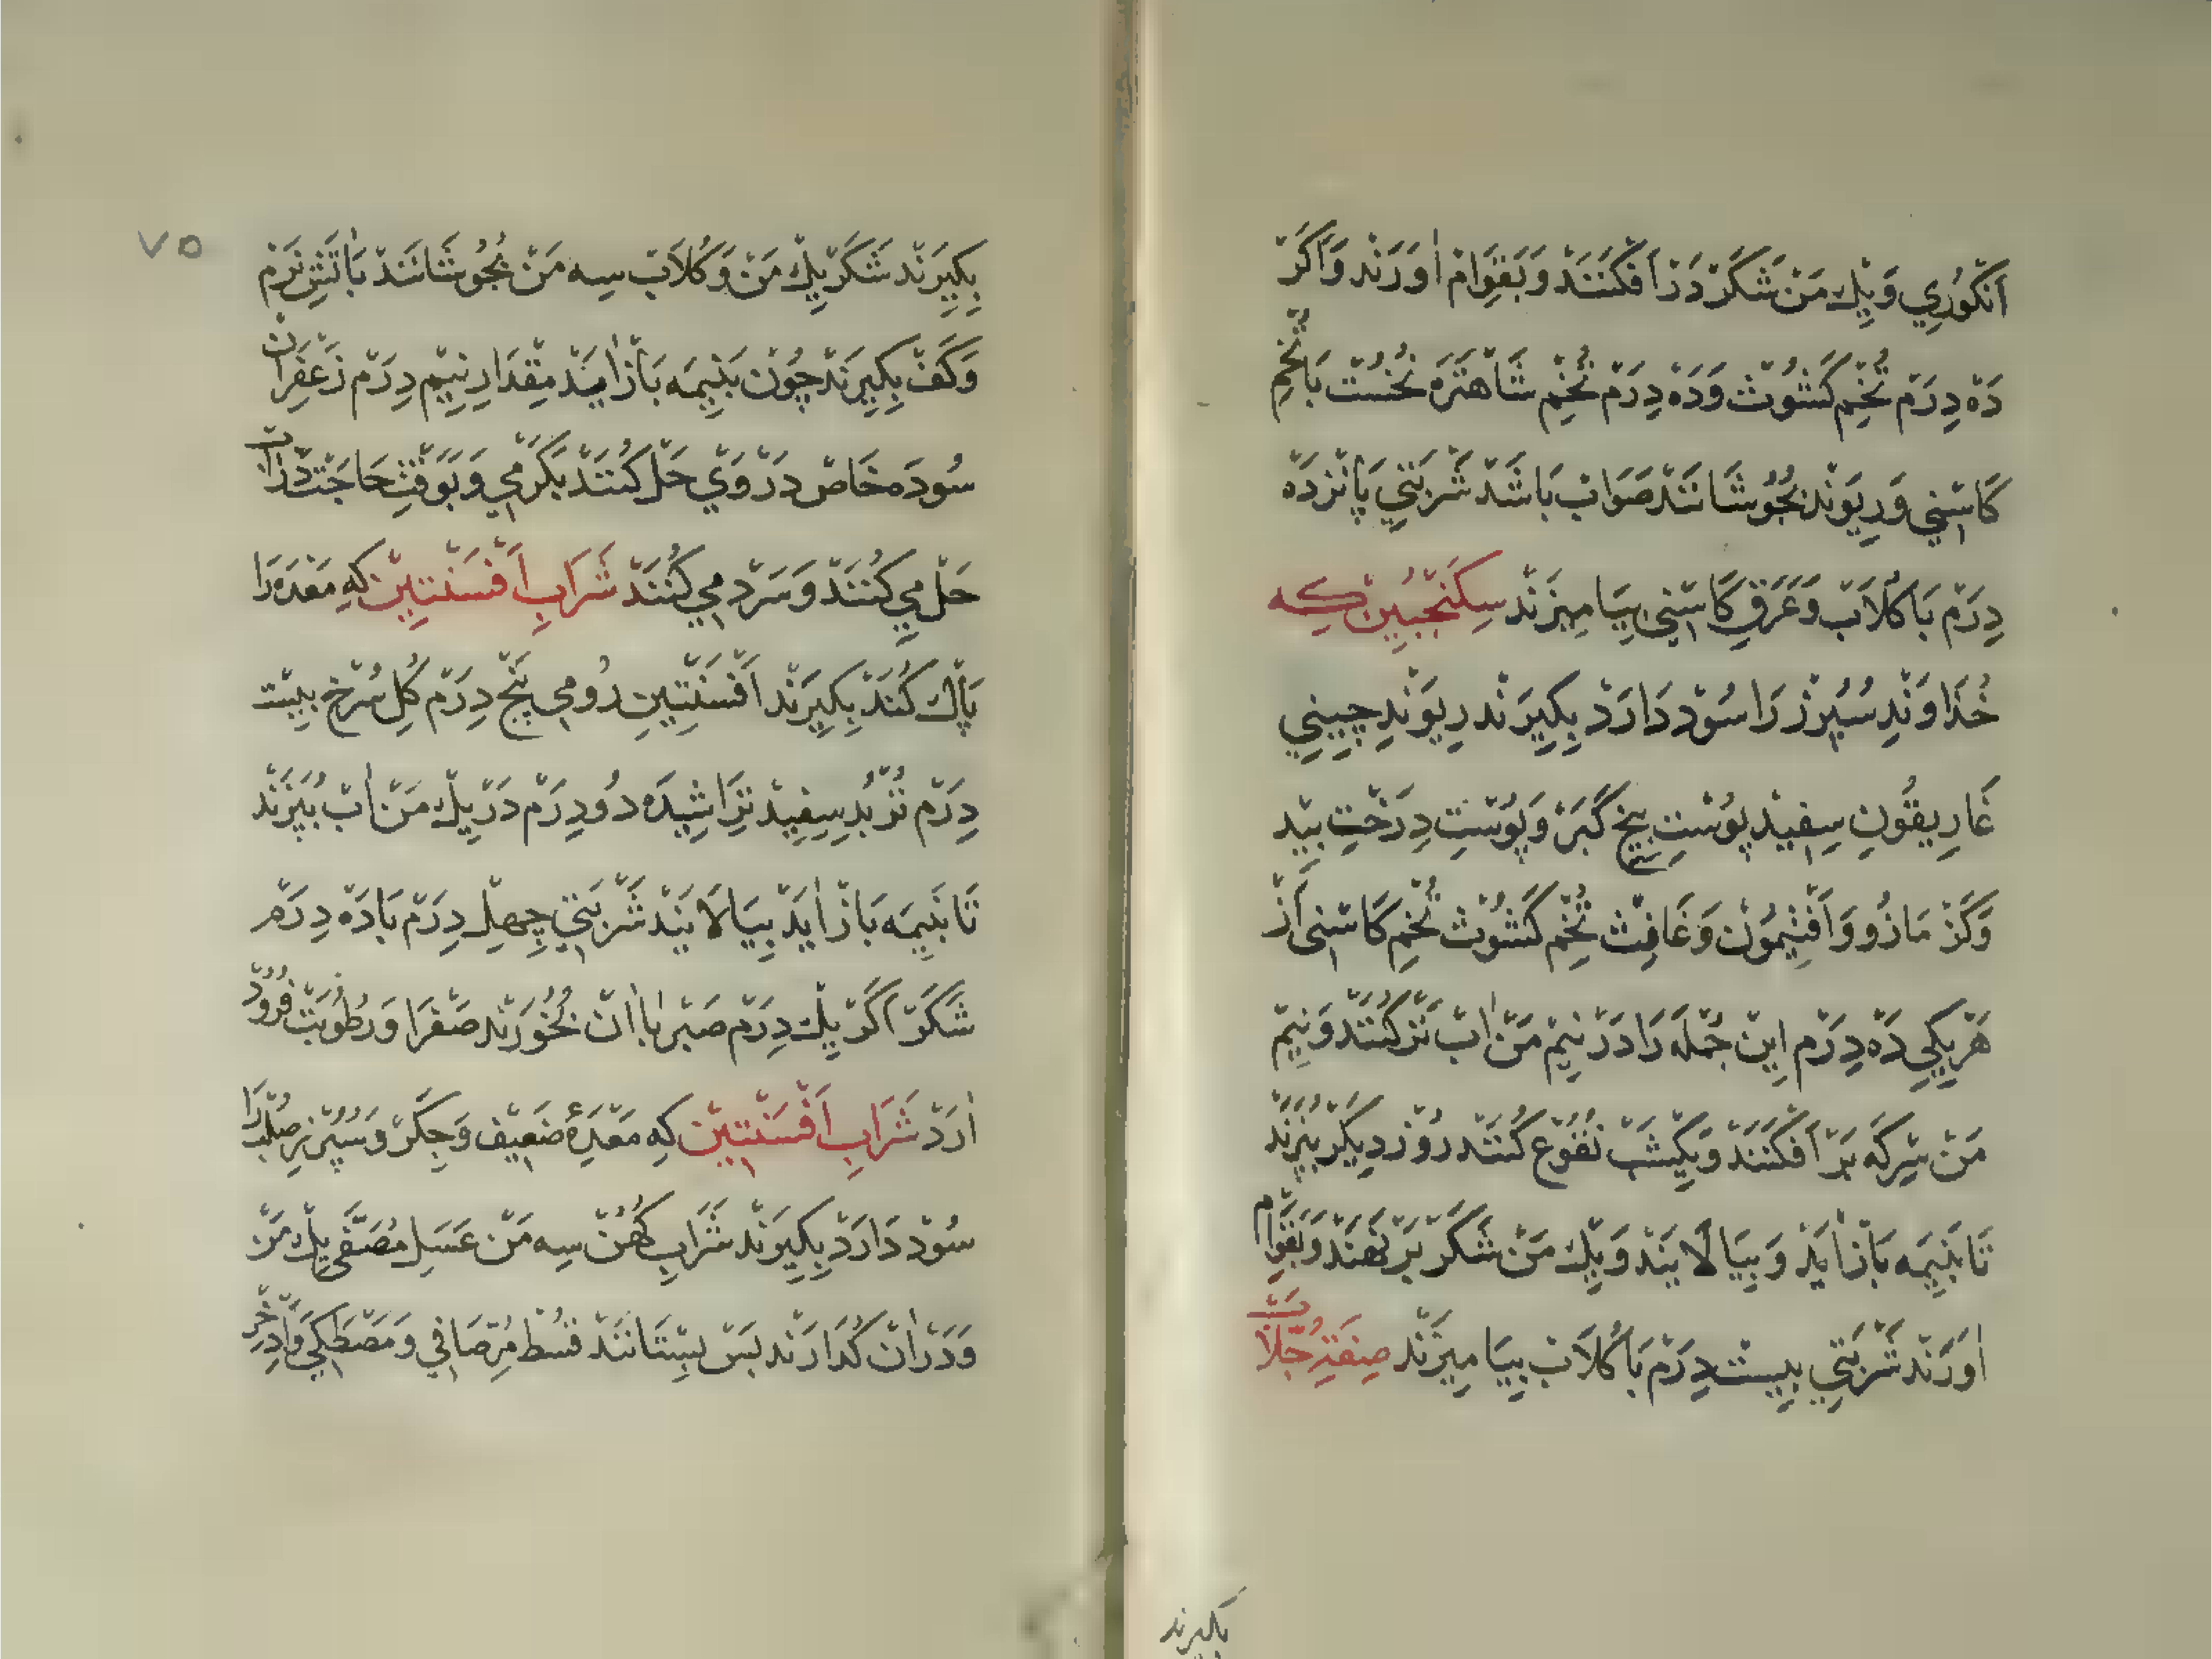 اَنْگُورِي وَيِكْ مَنْ شَكَرْ دَرْ اَفْكَنَنْدْ وَبَقَوَامْ اٰوَرَنْد وَاَگَرْ
دَهْ دِرَمْ تُخْمِ كَشُوثْ وَدَهْ دِرَمْ تُخْمِ شَاهْتَرَه نُخُسْتْ بَا تُخْمِ
كَاسْنِي وَرِيوَنْد بِجُوشَانَنْدْ صَوَابْ بَاشَدْ شَرْبَتِي پَانْزدَهْ
دِرَمْ بَا گُلَابْ وَعَرَقِ كَاسْنِي بِيَامِيزَنْد سِكَنْجَبِينْ كِه
خُدَاوَنْدِ سُپُرْزْ رَا سُودْ دَارَدْ بِگِيرَنْد رِيوَنْدِ چِينِي
غَارِيقُونِ سِفِيدْ پُوسْتِ بِيخِ كَبَرْ وَپُوسْتِ دِرَخْتِ بِيد
وَگَزْ مَازُو وَاَفْتِيمُونْ وَغَافِثْ تُخْمِ كَشُوثْ تُخْمِ كَاسْنِى اَزْ
هَرْيِكِي دَهْ دِرَمْ اِينْ جُمْلَه رَا دَرْ نِيمْ مَنْ اٰبْ تَرْ كُنَنْد وَنِيمْ
مَنْ سِرْكَه بَرْ اَفْكَنَنْدْ وَيِكْشَبْ نُقُوعْ كُنَنْد رُوزْ دِيگَرْ بِپَزَنْد
تَا بَنِيمَه بَازْ اٰيَدْ وَبِيَالَايَنْد وَيِكْ مَنْ شَكَرْ بَرْ نَهَنْد وَبَقَوَامْ
اٰوَرَنْد شَرْبَتِي بِيسْتْ دِرَمْ بَا گُلَابْ بِيَامِيزَنْد صِفَةِ جُلَّابْ
بگیرند
٧٥
بِگِيرَنْد شَكَرْ يِكْ مَنْ وَگُلَابْ سِه مَنْ بِجُوشَانَنْدْ بَاٰتَشِ نَرْمْ
وَكَفْ بِگِيرَنْد چُونْ بَنِيمَه بَازْ اٰمَدْ مِقْدَارِ نِيمْ دِرَمْ زَعْفَرَانْ
سُودَه خَاصْ دَرْ وَيْ حَلْ كُنَنْدْ بَگَرْمِي وَبَوَقْتِ حَاجَتْ دَرْ اٰبْ
حَلْ مِي كُنَنْدْ وَسَرْدْ مِي كُنَنْدْ شَرَابِ اَفْسَنْتِينْ كِه مَعْدَه رَا
پَاكْ كُنَدْ بِگِيرَنْد اَفْسَنْتِينِ رُومِي پَنْجْ دِرَمْ گُلِ سُرْخْ بِيسْتْ
دِرَمْ تُرْبُدِ سِفِيدْ تَرَاشِيدَه دُو دِرَمْ دَرْ يِكْ مَنْ اٰبْ بِپَزَنْد
تَا بَنِيمَه بَازْ اٰيَدْ بِيَالَايَنْد شَرْبَتِي چِهِلْ دِرَمْ بَا دَهْ دِرَمْ
شَكَرْ اَگَرْ يِكْ دِرَمْ صَبْر بَا اٰنْ بُخُورَنْد صَفْرَا وَرُطُوبَتْ فُرُودْ
اٰرَدْ شَرَابِ اَفْسَنْتِينْ كِه مَعْدَۀ ضَعِيف وَجِگَرْ وَسُپُرْزِ صُلْبْ رَا
سُودْ دَارَدْ بِگِيرَنْد شَرَابِ كُهُنْ سِه مَنْ عَسَلِ مُصَفَّى يِكْ مَنْ
وَدَرْ اٰنْ گُدَارَنْد بَسْ بِسِتَانَنْدْ قُسْطِ مُرْ صَافِي وَمَصْطَكِي وَاِدْخِرْ